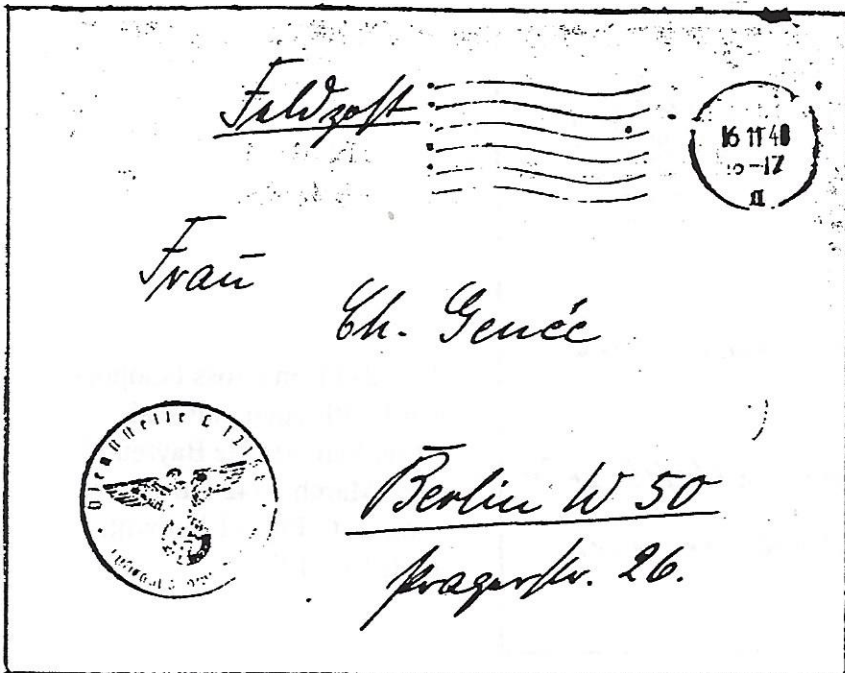 Feldpost
16 11 40
-17
II
Frau
Ch. Genée
Dienststelle
Berlin W 50
Pragerstr. 26.